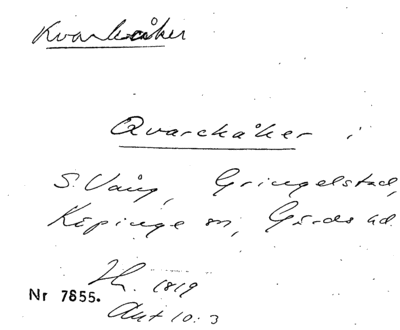 Kvarkåker
Qvarckåker i
S. Vång, Gringelstad,
Köpinge sn, Gärds hd.
Nr 7855.
1819
Akt 10:3